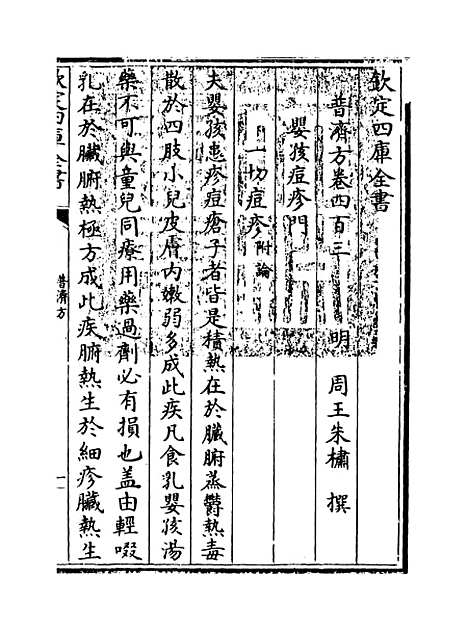 欽定四庫全書
普濟方卷四百三 明 周王朱橚 撰
嬰孩痘疹門
一切痘疹附論
夫嬰孩患疹痘瘡子者皆是積熱在於臟腑蒸鬱熱毒
散於四肢小兒皮膚内嫩弱多成此疾凡食乳嬰孩湯
藥不可與童兒同療用藥過劑必有損也盖由輕啜
乳在於臟腑熱極方成此疾腑熱生於細疹臟熱生
欽定四庫全書
普濟方
一